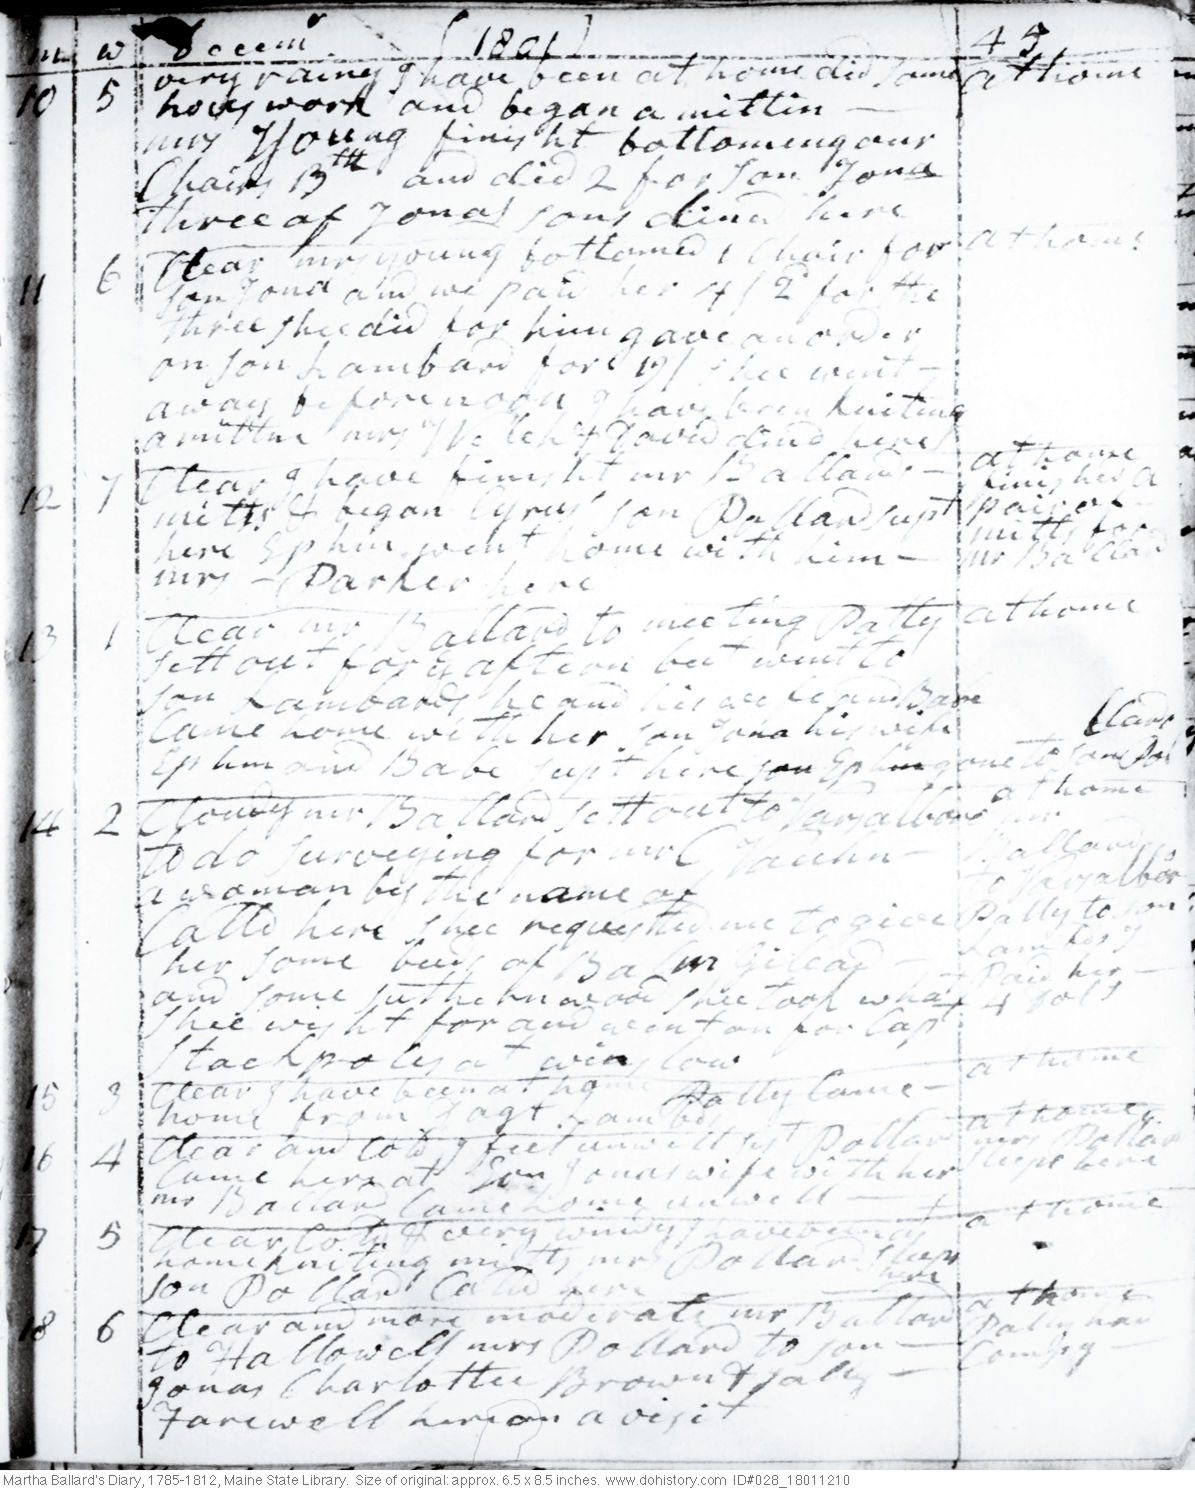 m w Decemr. [1801] 45
very rainy I have been at home did Some at home
10 5 hous work and began a mittin —
mrs Young finisht bottoming our
Chairs 13th and did 2 for Son Jona
three of Jonas sons dined here
11 6 Clear mrs young bottomed 1 Chair for at home
son Jona and we paid her 4/2d for the
three shee did for him gave an order
on son Lambard for 19/ shee went —
away before noon I have been kniting
a mittin mrs Welch & David dind here
12 7 Clear I have finisht mr Ballards — at home
finished a
mitts & began Cyrus' son Pollard supt pair of
here Ephm went home with him — mitts for
mr Ballard
mrs — Parker here
13 1 Clear mr Ballard to meeting Patty at home
sett out for ye aftern but went to
son Lambards he and his wife and Babe
Came home with her son Jona his wife
Ephm and Babe supt here son Ephm gone to son Pollards
14 2 Cloudy mr Ballard sett out to Vasalboro at home
mr
to do surveying for mr — Ballard
a woman by the name of to Vasalboro
Calld here shee requested me to give Patty to son
Lambds I
her some buds of Balm Gilead — Paid her —
and some suthernwood shee took what 4 Dols
shee wisht for and went on for Capt
Stackpoles at winslow
15 3 Clear I have been at home Patty Came — at home
home from Lambds
16 4 Clear and cold I feel unwell sist Pollard at home
mrs Pollard
Came here at Son Jonas wife with her sleeps here
mr Ballard Came home unwell
17 5 Clear Cold & very windy I have been at at home
home kniting mitts mrs Pollard sleeps
here
son Pollard Calld here
18 6 Clear and more moderate mr Ballard at home
to Hallowell mrs Pollard to son — Patty had
Company —
Jonas Charlottee Brown & Sally —
Farewell here on a visit
Martha Ballard's Diary, 1785-1812, Maine State Library. Size of original: approx. 6.5 x 8.5 inches. www.dohistory.com ID#028_18011210